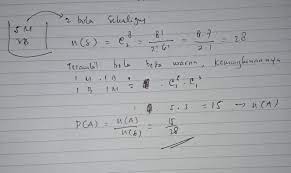 5 M
3 B
2 bola Sekaligus
n(S) = C₂⁸ = 8! / 2! 6! = 8.7 / 2.1 = 28
Terambil bola beda warna, kemungkinannya
1 M 1 B
1 B 1 M
5.3 = 15 → n(A)
P(A) = n(A) / n(S) = 15 / 28